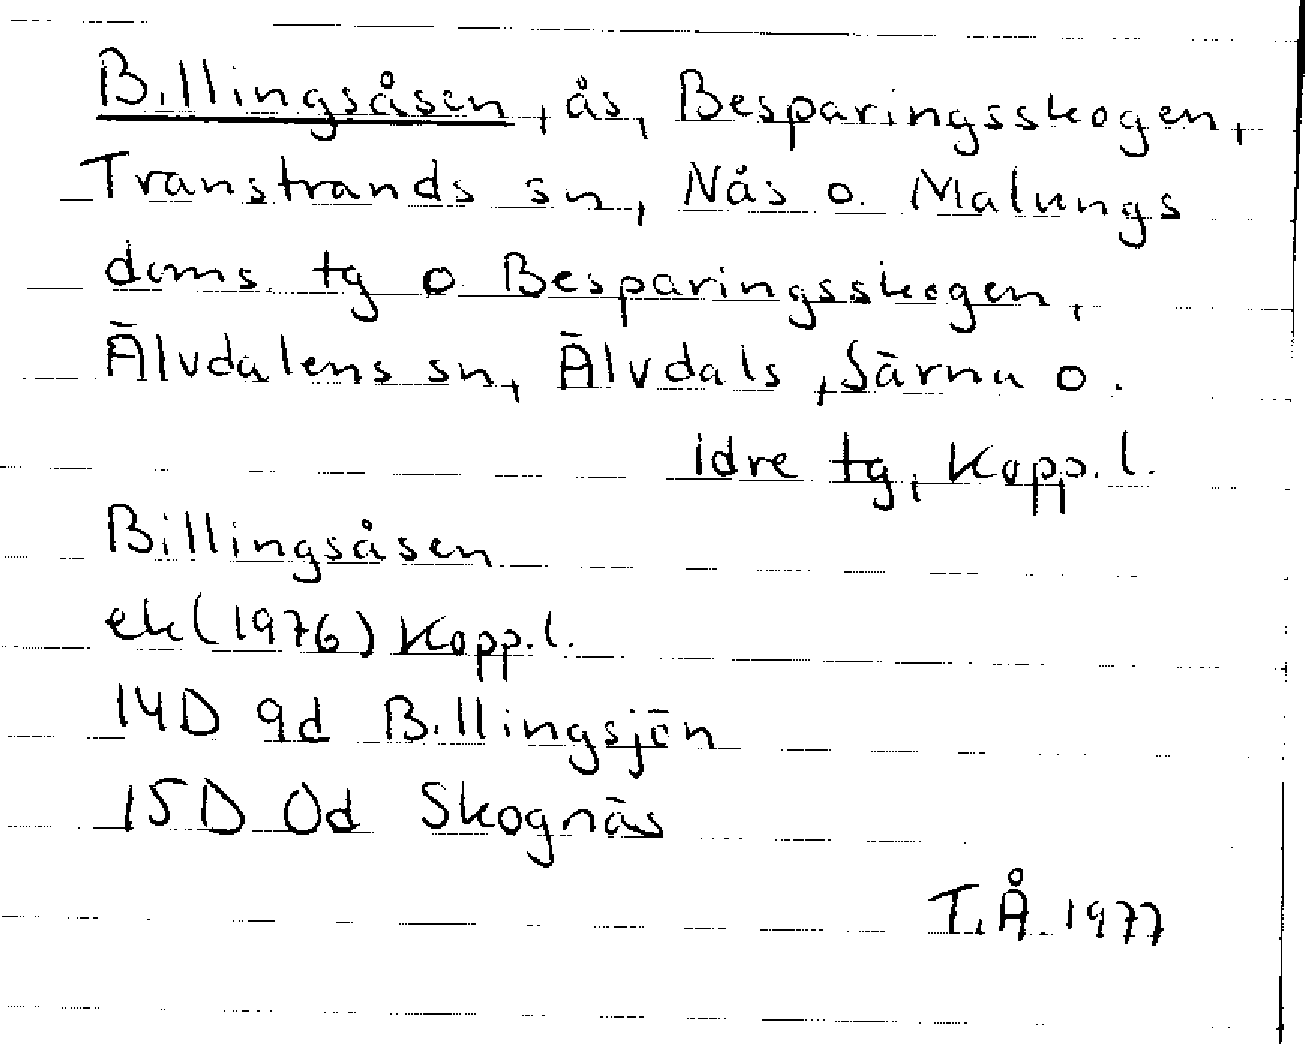 Billingsåsen, ås, Besparingsskogen,
Transtrands sn, Nås o. Malungs
doms. tg o Besparingsskogen,
Älvdalens sn, Älvdals, Särna o.
Idre tg, Kopp. l.
Billingsåsen
ek (1976) Kopp. l.
14D 9d Billingsjön
15D 0d Skognäs
T.Å. 1977